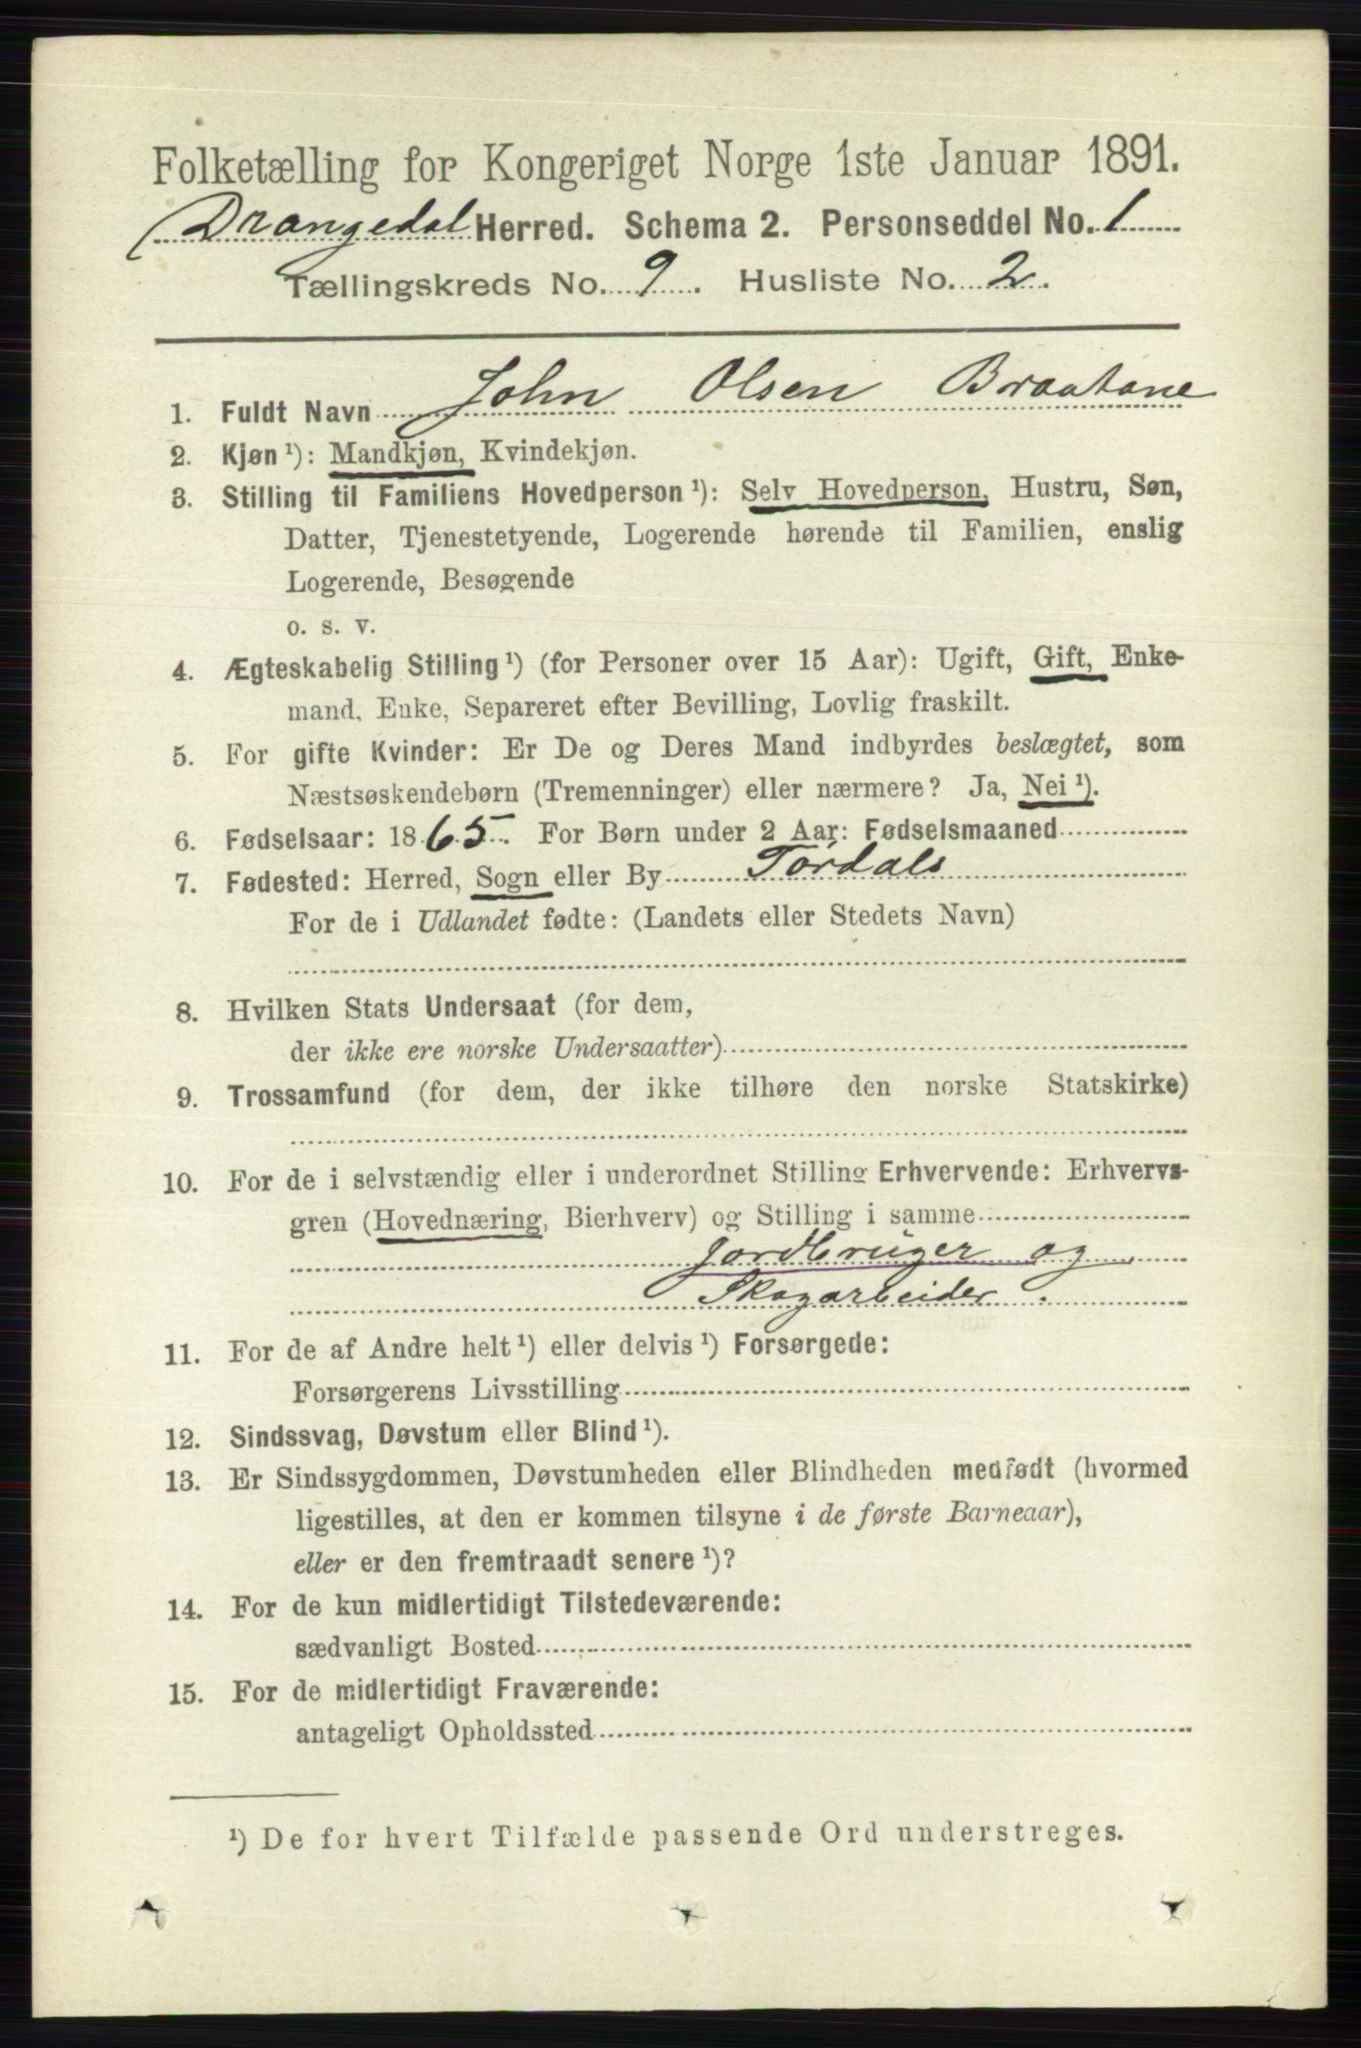 Folketælling for Kongeriget Norge 1ste Januar 1891.
Drangedal Herred. Schema 2. Personseddel No. 1
Tællingskreds No. 9. Husliste No. 2.
1. Fuldt Navn John Olsen Braatane
2. Kjøn¹): Mandkjøn, Kvindekjøn.
3. Stilling til Familiens Hovedperson¹): Selv Hovedperson, Hustru, Søn,
Datter, Tjenestetyende, Logerende hørende til Familien, enslig
Logerende, Besøgende
o. s. v.
4. Ægteskabelig Stilling¹) (for Personer over 15 Aar): Ugift, Gift, Enke-
mand, Enke, Separeret efter Bevilling, Lovlig fraskilt.
5. For gifte Kvinder: Er De og Deres Mand indbyrdes beslægtet, som
Næstsøskendebørn (Tremenninger) eller nærmere? Ja, Nei¹).
6. Fødselsaar: 1865. For Børn under 2 Aar: Fødselsmaaned
7. Fødested: Herred, Sogn eller By Tørdals
For de i Udlandet fødte: (Landets eller Stedets Navn)
8. Hvilken Stats Undersaat (for dem,
der ikke ere norske Undersaatter)
9. Trossamfund (for dem, der ikke tilhøre den norske Statskirke)
10. For de i selvstændig eller i underordnet Stilling Erhvervende: Erhvervs-
gren (Hovednæring, Bierhverv) og Stilling i samme
Jordbruger og
Skogarbeider.
11. For de af Andre helt¹) eller delvis¹) Forsørgede:
Forsørgerens Livsstilling
12. Sindssvag, Døvstum eller Blind¹).
13. Er Sindssygdommen, Døvstumheden eller Blindheden medfødt (hvormed
ligestilles, at den er kommen tilsyne i de første Barneaar),
eller er den fremtraadt senere¹)?
14. For de kun midlertidigt Tilstedeværende:
sædvanligt Bosted
15. For de midlertidigt Fraværende:
antageligt Opholdssted
¹) De for hvert Tilfælde passende Ord understreges.